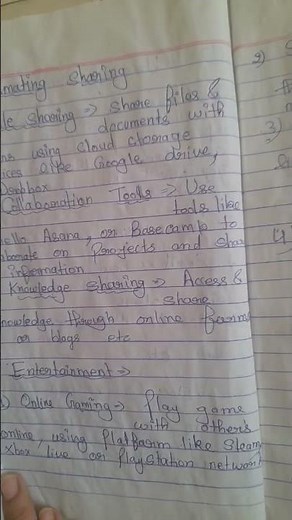 mating sharing
le sharing => share files &
documents with
ns using cloud clonage
ices like Google drive,
Dropbox
Collaboration Tools => Use
tools like
ello Asana, or Basecamp to
aborate on Projects and shar
information
Knowledge sharing => Access &
share
nowledge through online foarm
or blogs etc
Entertainment ->
) Online Gaming -> Play game
with others
online, using Platfoarm like Steam
Xbox live or PlayStation networ
2)
3)
4